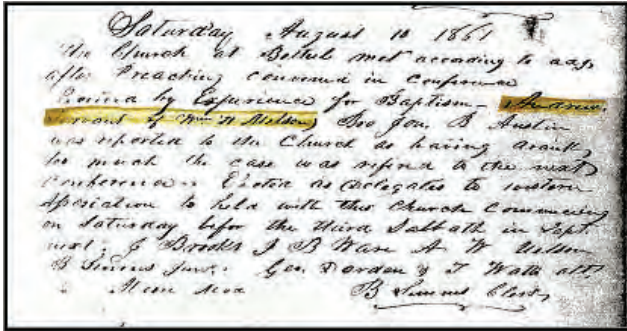 Saturday August 10 1861
the Church at Bethel met according to adj
after Preaching convened in conference
Received by Experience for Baptism - Andrew
servant of Wm W Melson Bro Jon. B Austin
was reported to the Church as having drank
too much the case was referd to the next
conference. Elected as delegates to western
association to held with this Church commencing
on Saturday befor the third Sabbath in Sept.
next. J Brooks J B Ware A. W.
B Simms Junr. Geo. Darden & T Watts alt
Mod B Simms Clerk